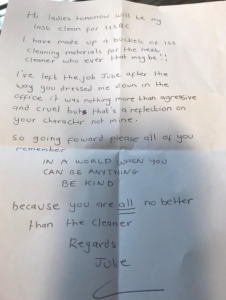 Hi ladies tomorrow will be my
last clean for HSBC
I have made up a buckets of
cleaning materials for the next
cleaner who ever that maybe!!
I've left the job Julie after the
way you dressed me down in the
office it was nothing more than agressive
and cruel but that's a reflection on
your character not mine.
so going foward please all of you
remember
IN A WORLD WHEN YOU
CAN BE ANYTHING
BE KIND
because you are all no better
than the cleaner
Regards
Julie